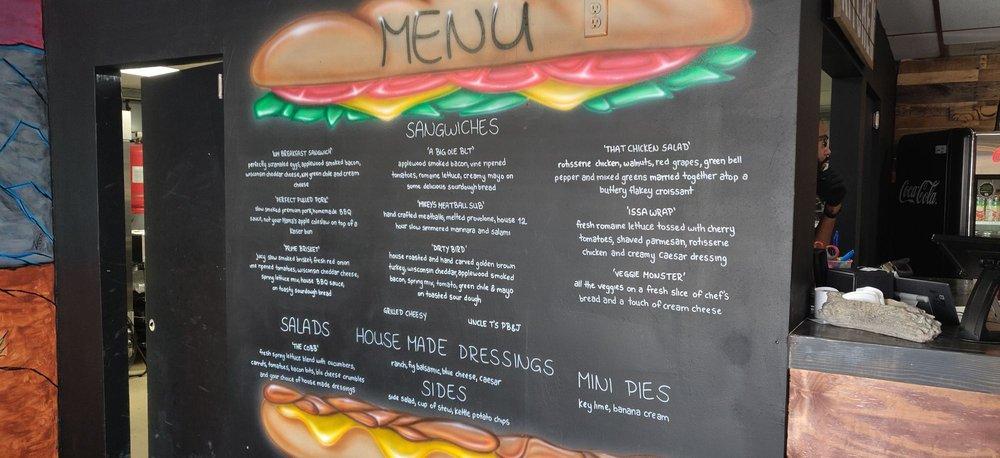 MENU
SANGWICHES
'NM BREAKFAST SANGWICH'
perfectly scrambled eggs, applewood smoked bacon,
wisconsin cheddar cheese, NM green chile and cream
cheese
'PERFECT PULLED PORK'
slow smoked premium pork, homemade BBQ
sauce, not your Mama's apple coleslaw on top of a
Kaiser bun
'PRIME BRISKET'
juicy slow smoked brisket, fresh red onion
vine ripened tomatoes, wisconsin cheddar cheese,
spring lettuce mix, house BBQ sauce,
on toasty sourdough bread
'A BIG OLE BLT'
applewood smoked bacon, vine ripened
tomatoes, romaine lettuce, creamy mayo on
some delicious sourdough bread
'MIKEY'S MEATBALL SUB'
hand crafted meatballs, melted provolone, house 12
hour slow simmered marinara and salami
'DIRTY BIRD'
house roasted and hand carved golden brown
turkey, wisconsin cheddar, applewood smoked
bacon, spring mix, tomato, green chile & mayo
on toasted sour dough
GRILLED CHEESY
UNCLE T'S PB&J
'THAT CHICKEN SALAD'
rotisserie chicken, walnuts, red grapes, green bell
pepper and mixed greens married together atop a
buttery flakey croissant
'ISSA WRAP'
fresh romaine lettuce tossed with cherry
tomatoes, shaved parmesan, rotisserie
chicken and creamy caesar dressing
'VEGGIE MONSTER'
all the veggies on a fresh slice of chef's
bread and a touch of cream cheese
SALADS
'THE COBB'
fresh spring lettuce blend with cucumbers,
carrots, tomatoes, bacon bits, blu cheese crumbles
and your choice of house made dressings
HOUSE MADE DRESSINGS
ranch, fig balsamic, blue cheese, caesar
SIDES
side salad, cup of stew, kettle potato chips
MINI PIES
key lime, banana cream
Coca-Cola